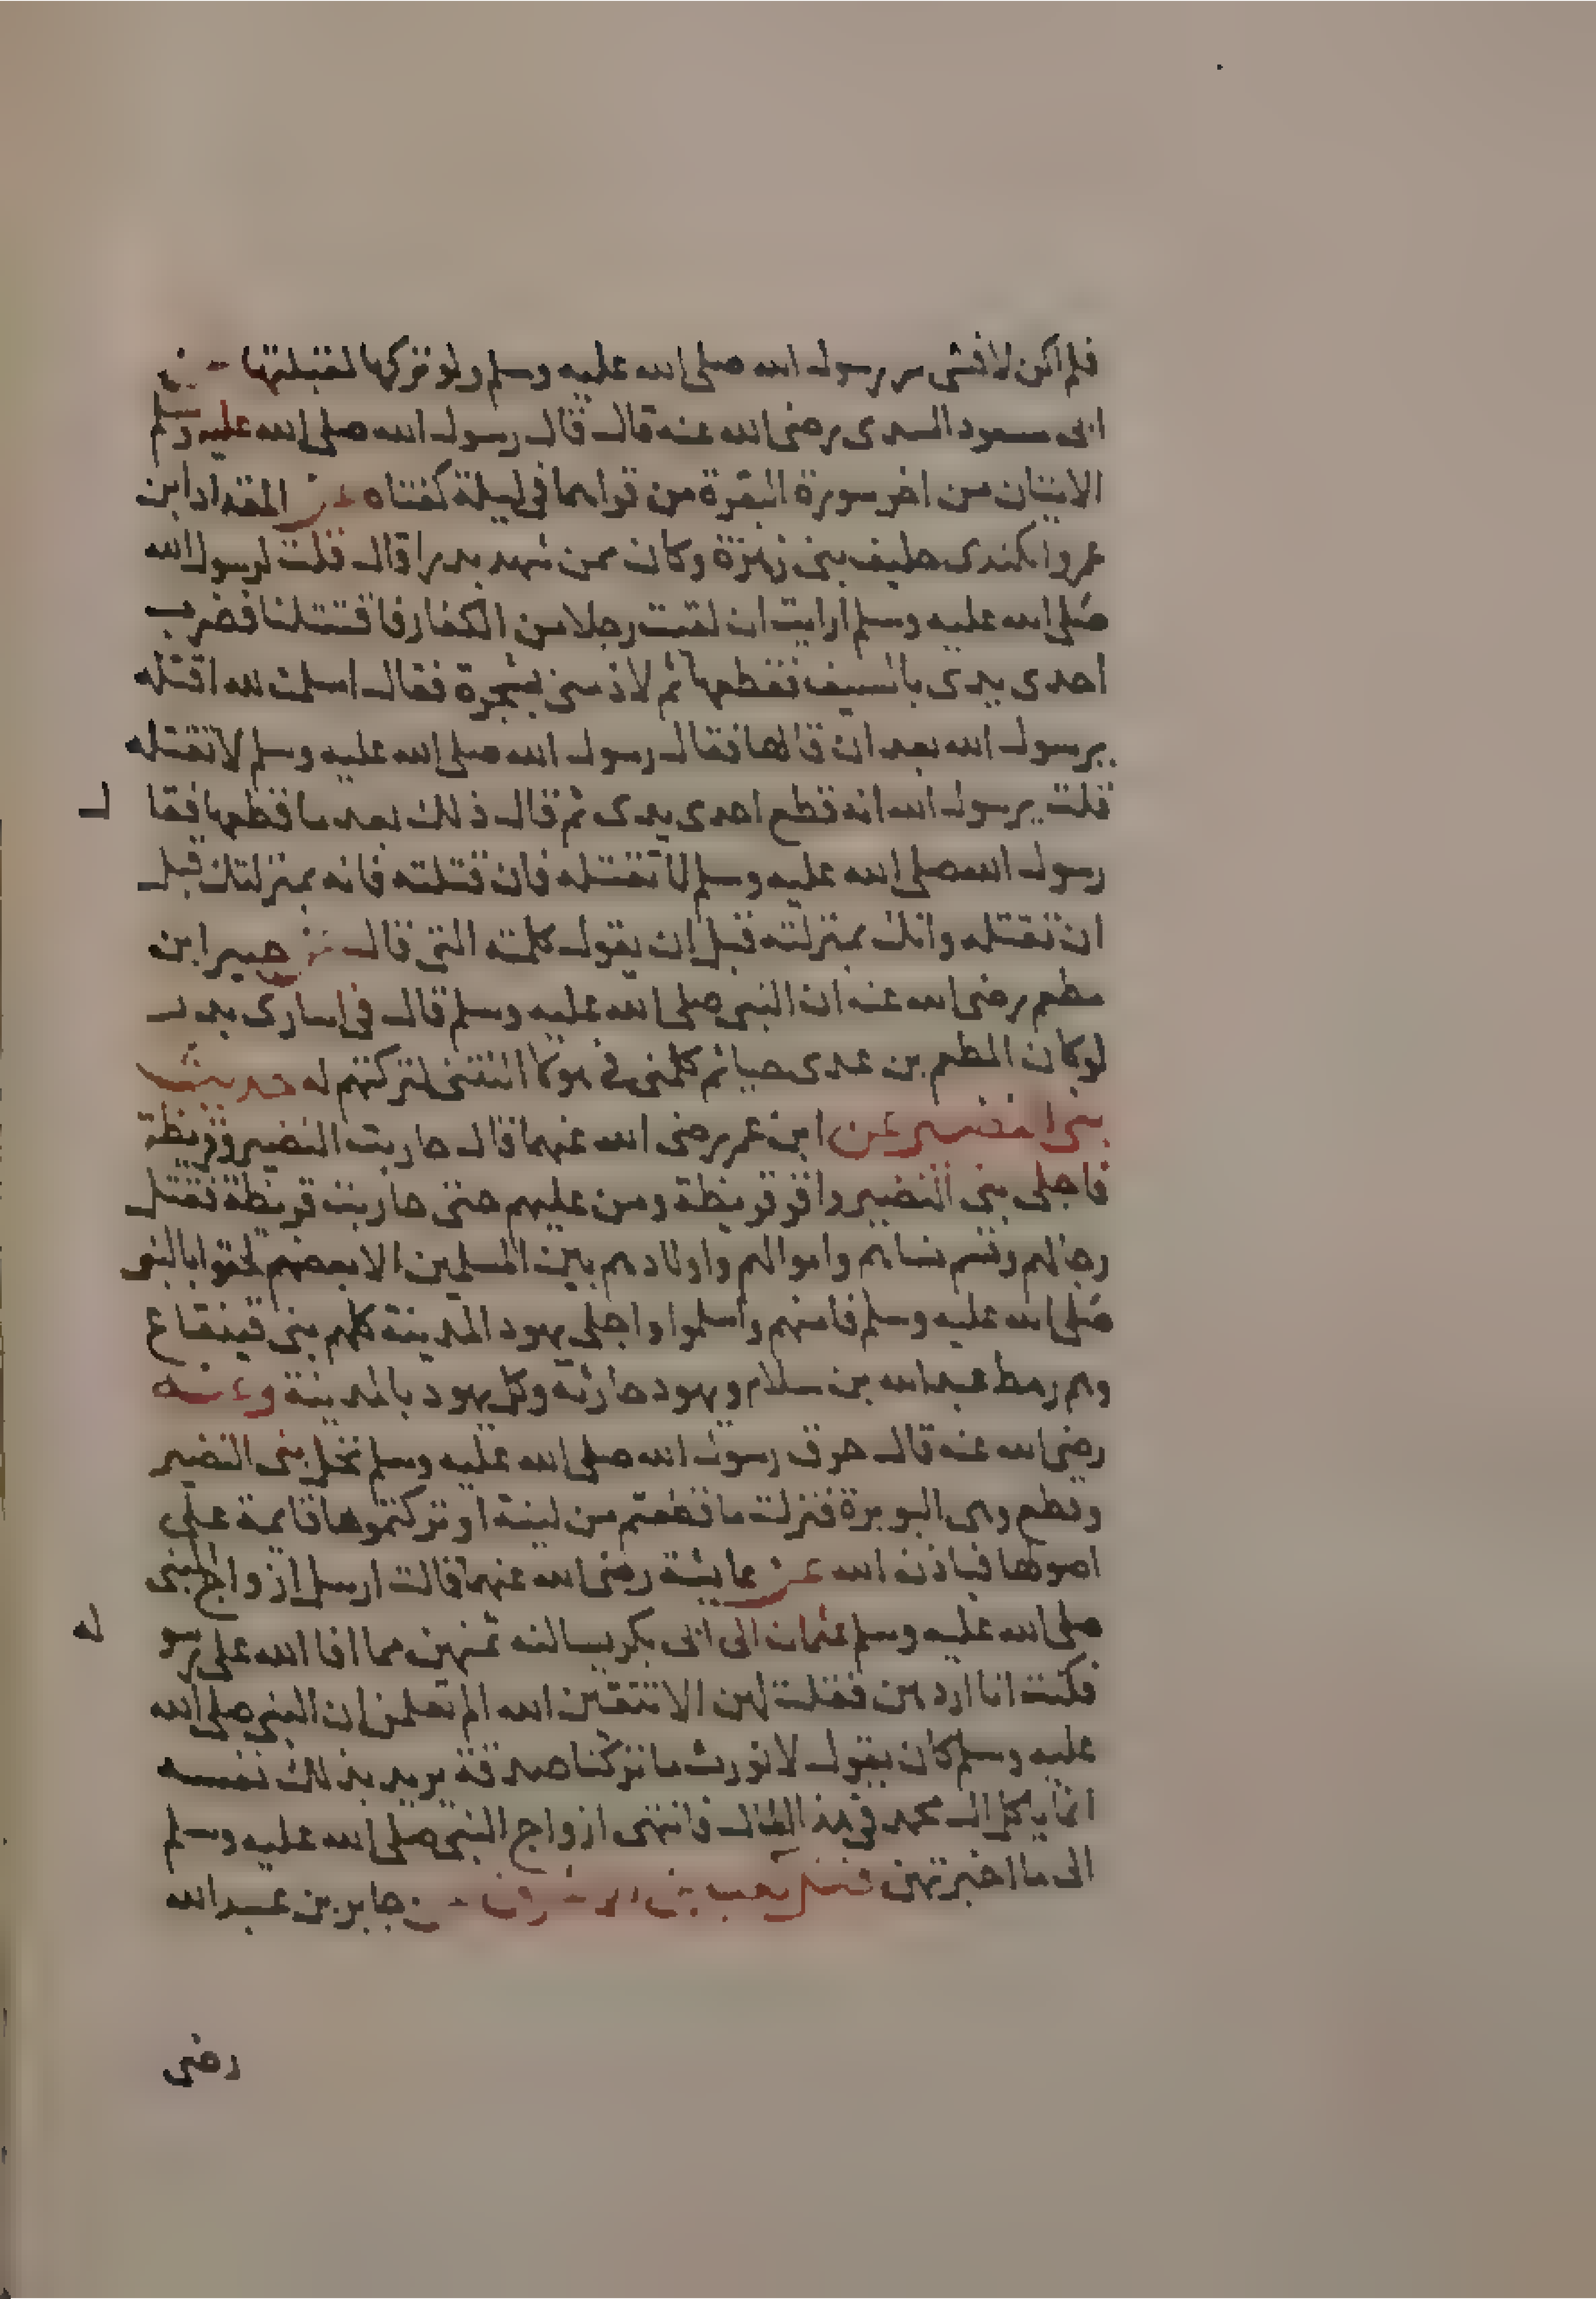 فلم اكن لافشى سر رسول الله صلى الله عليه وسلم ولو تركها لقبلتها عن
ابى مسعود البدرى رضى الله عنه قال قال رسول الله صلى الله عليه وسلم
الايتان من اخر سورة البقرة من قراهما فى ليلة كفتاه عن المقداد ابن
عمرو الكندى حليف بنى زهرة وكان ممن شهد بدرا قال قلت لرسول الله
صلى الله عليه وسلم ارايت ان لقيت رجلا من الكفار فاقتتلنا فضرب
احدى يدى بالسيف فقطعها ثم لاذ منى بشجرة فقال اسلمت لله اقتله
يرسول الله بعد ان قالها فقال رسول الله صلى الله عليه وسلم لا تقتله
قلت يرسول الله انه قطع احدى يدى ثم قال ذلك بعد ما قطعها فقال
رسول الله صلى الله عليه وسلم لا تقتله فان قتلته فانه بمنزلتك قبل
ان تقتله وانك بمنزلته قبل ان يقول كلمته التى قال عن جبير ابن
مطعم رضى الله عنه ان النبى صلى الله عليه وسلم قال فى اسارى بدر
لو كان المطعم بن عدى حيا ثم كلمنى فى هولا النتنى لتركتهم له حديث
بنى النضير عن ابن عمر رضى الله عنهما قال حاربت النضير وقريظة
فاجلى بنى النضير واقر قريظة ومن عليهم حتى حاربت قريظة فقتل
رجالهم وقسم نساهم واموالهم واولادهم بين المسلمين الا بعضهم لحقوا بالنبى
صلى الله عليه وسلم فامنهم واسلموا واجلى يهود المدينة كلهم بنى قينقاع
وهم رهط عبد الله بن سلام ويهود حارثة وكل يهود بالمدينة وعنه
رضى الله عنه قال حرق رسول الله صلى الله عليه وسلم نخل بنى النضير
وقطع وهى البويرة فنزلت ما قطعتم من لينة او تركتموها قايمة على
اصولها فباذن الله عن عايشة رضى الله عنها قالت ارسل ازواج النبى
صلى الله عليه وسلم عثمان الى ابى بكر يسالنه ثمنهن مما افا الله على رسوله
فكنت انا اردهن فقلت لهن الا تتقين الله الم تعلمن ان النبى صلى الله
عليه وسلم كان يقول لا نورث ما تركنا صدقة يريد بذلك نفسه
انما ياكل ال محمد فى هذا المال فانتهى ازواج النبى صلى الله عليه وسلم
الى ما اخبرتهن قتل كعب بن الاشرف عن جابر بن عبد الله
رضى